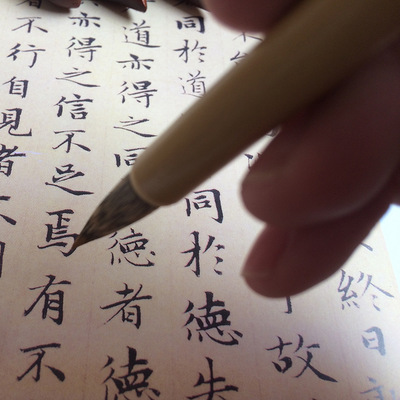 終日
故
同於道同於德失
道亦得之同德者德
亦得之信不足焉有不
不行自見者不